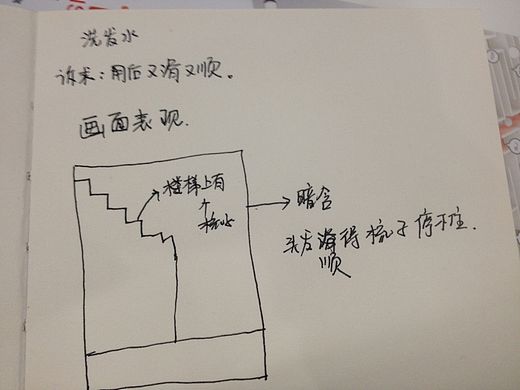 洗发水
诉求：用后又滑又顺。
画面表现.
楼梯上有
个
梳子
暗含
头发滑得梳子停不住.
顺